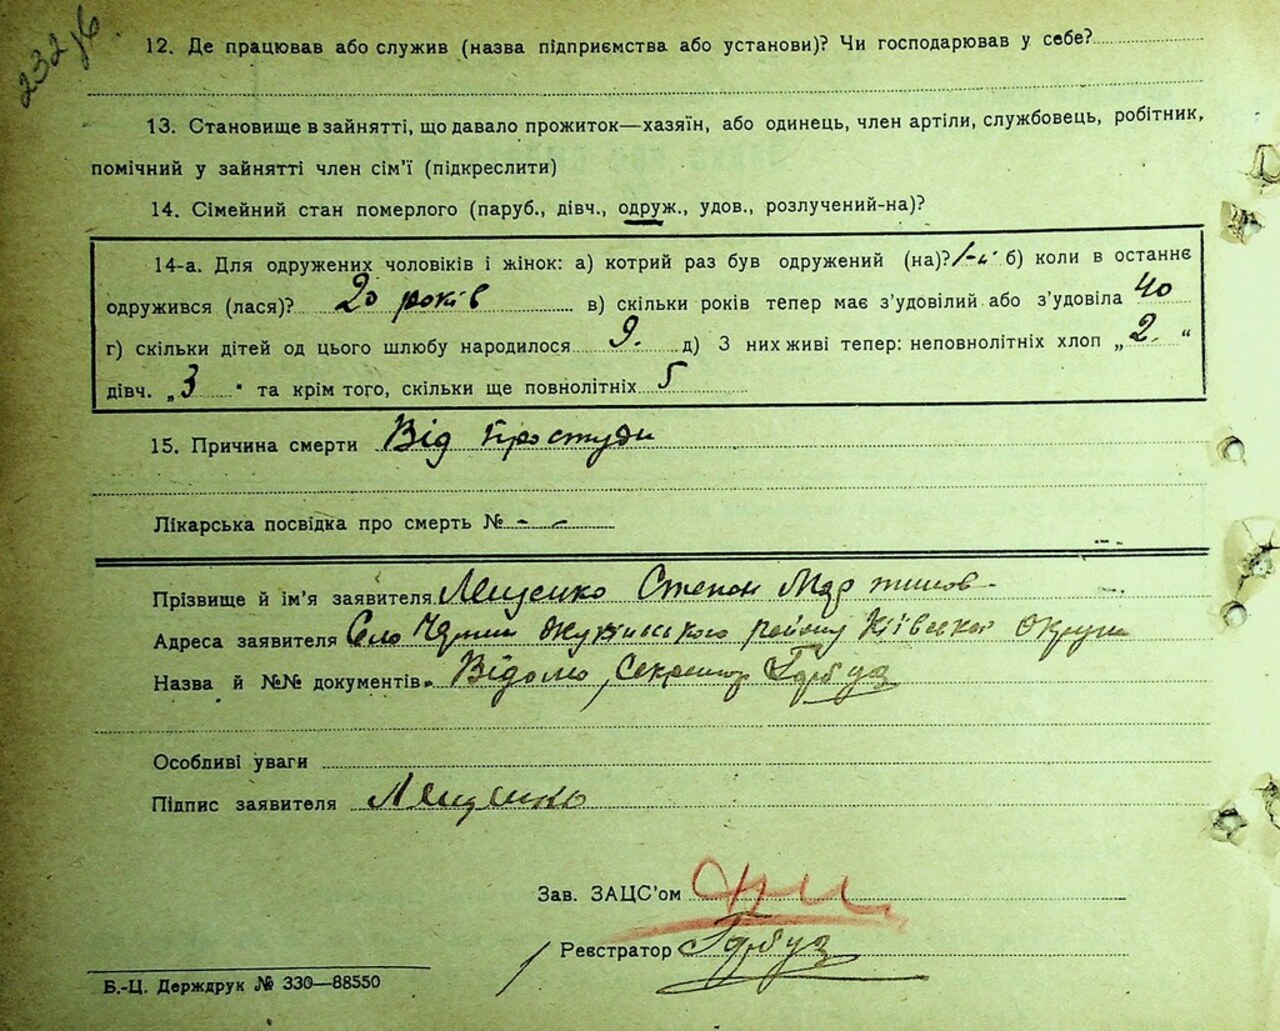 232
12. Де працював або служив (назва підприємства або установи)? Чи господарював у себе?
13. Становище в зайнятті, що давало прожиток—хазяїн, або одинець, член артіли, службовець, робітник,
помічний у зайнятті член сім’ї (підкреслити)
14. Сімейний стан померлого (паруб., дівч., одруж., удов., розлучений-на)?
14-а. Для одружених чоловіків і жінок: а) котрий раз був одружений (на)? 1-й б) коли в останнє
одружився (лася)? 20 років в) скільки років тепер має з’удовілий або з’удовіла 40
г) скільки дітей од цього шлюбу народилося 9. д) З них живі тепер: неповнолітніх хлоп „2.“
дівч. „3“ та крім того, скільки ще повнолітніх 5
15. Причина смерти Від простуди
Лікарська посвідка про смерть № - -
Прізвище й ім’я заявителя Лещенко Степан
Адреса заявителя Село району Київської Округи
Назва й №№ документів. Відомо, Секретар Гарбуз
Особливі уваги
Підпис заявителя Лещенко
Зав. ЗАЦС’ом
Реєстратор Гарбуз
Б.-Ц. Держдрук № 330—88550